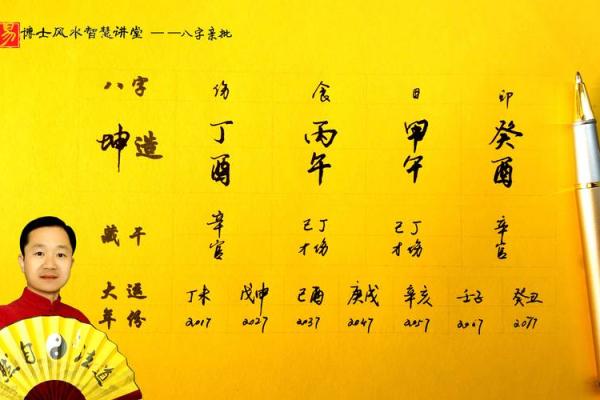 易 博士风水智慧讲堂 ——八字亲批
八字 伤 食 日 印
坤造 丁酉 丙午 甲午 癸酉
藏干 辛官 己丁才伤 己丁才伤 辛官
大运 丁未 戊申 己酉 庚戌 辛亥 壬子 癸丑
年份 2017 2027 2037 2047 2057 2067 2077
自 法 道